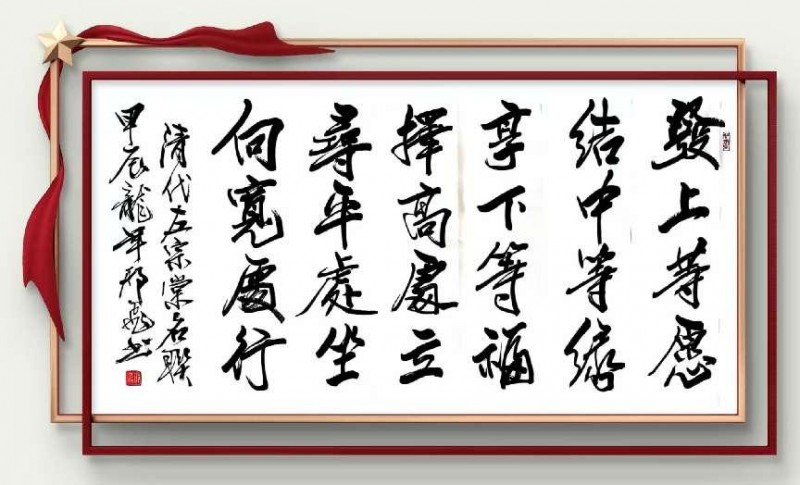 發上等愿
結中等緣
享下等福
擇高處立
尋平處坐
向寬處行
清代左宗棠名聯
甲辰龍年邢飛书